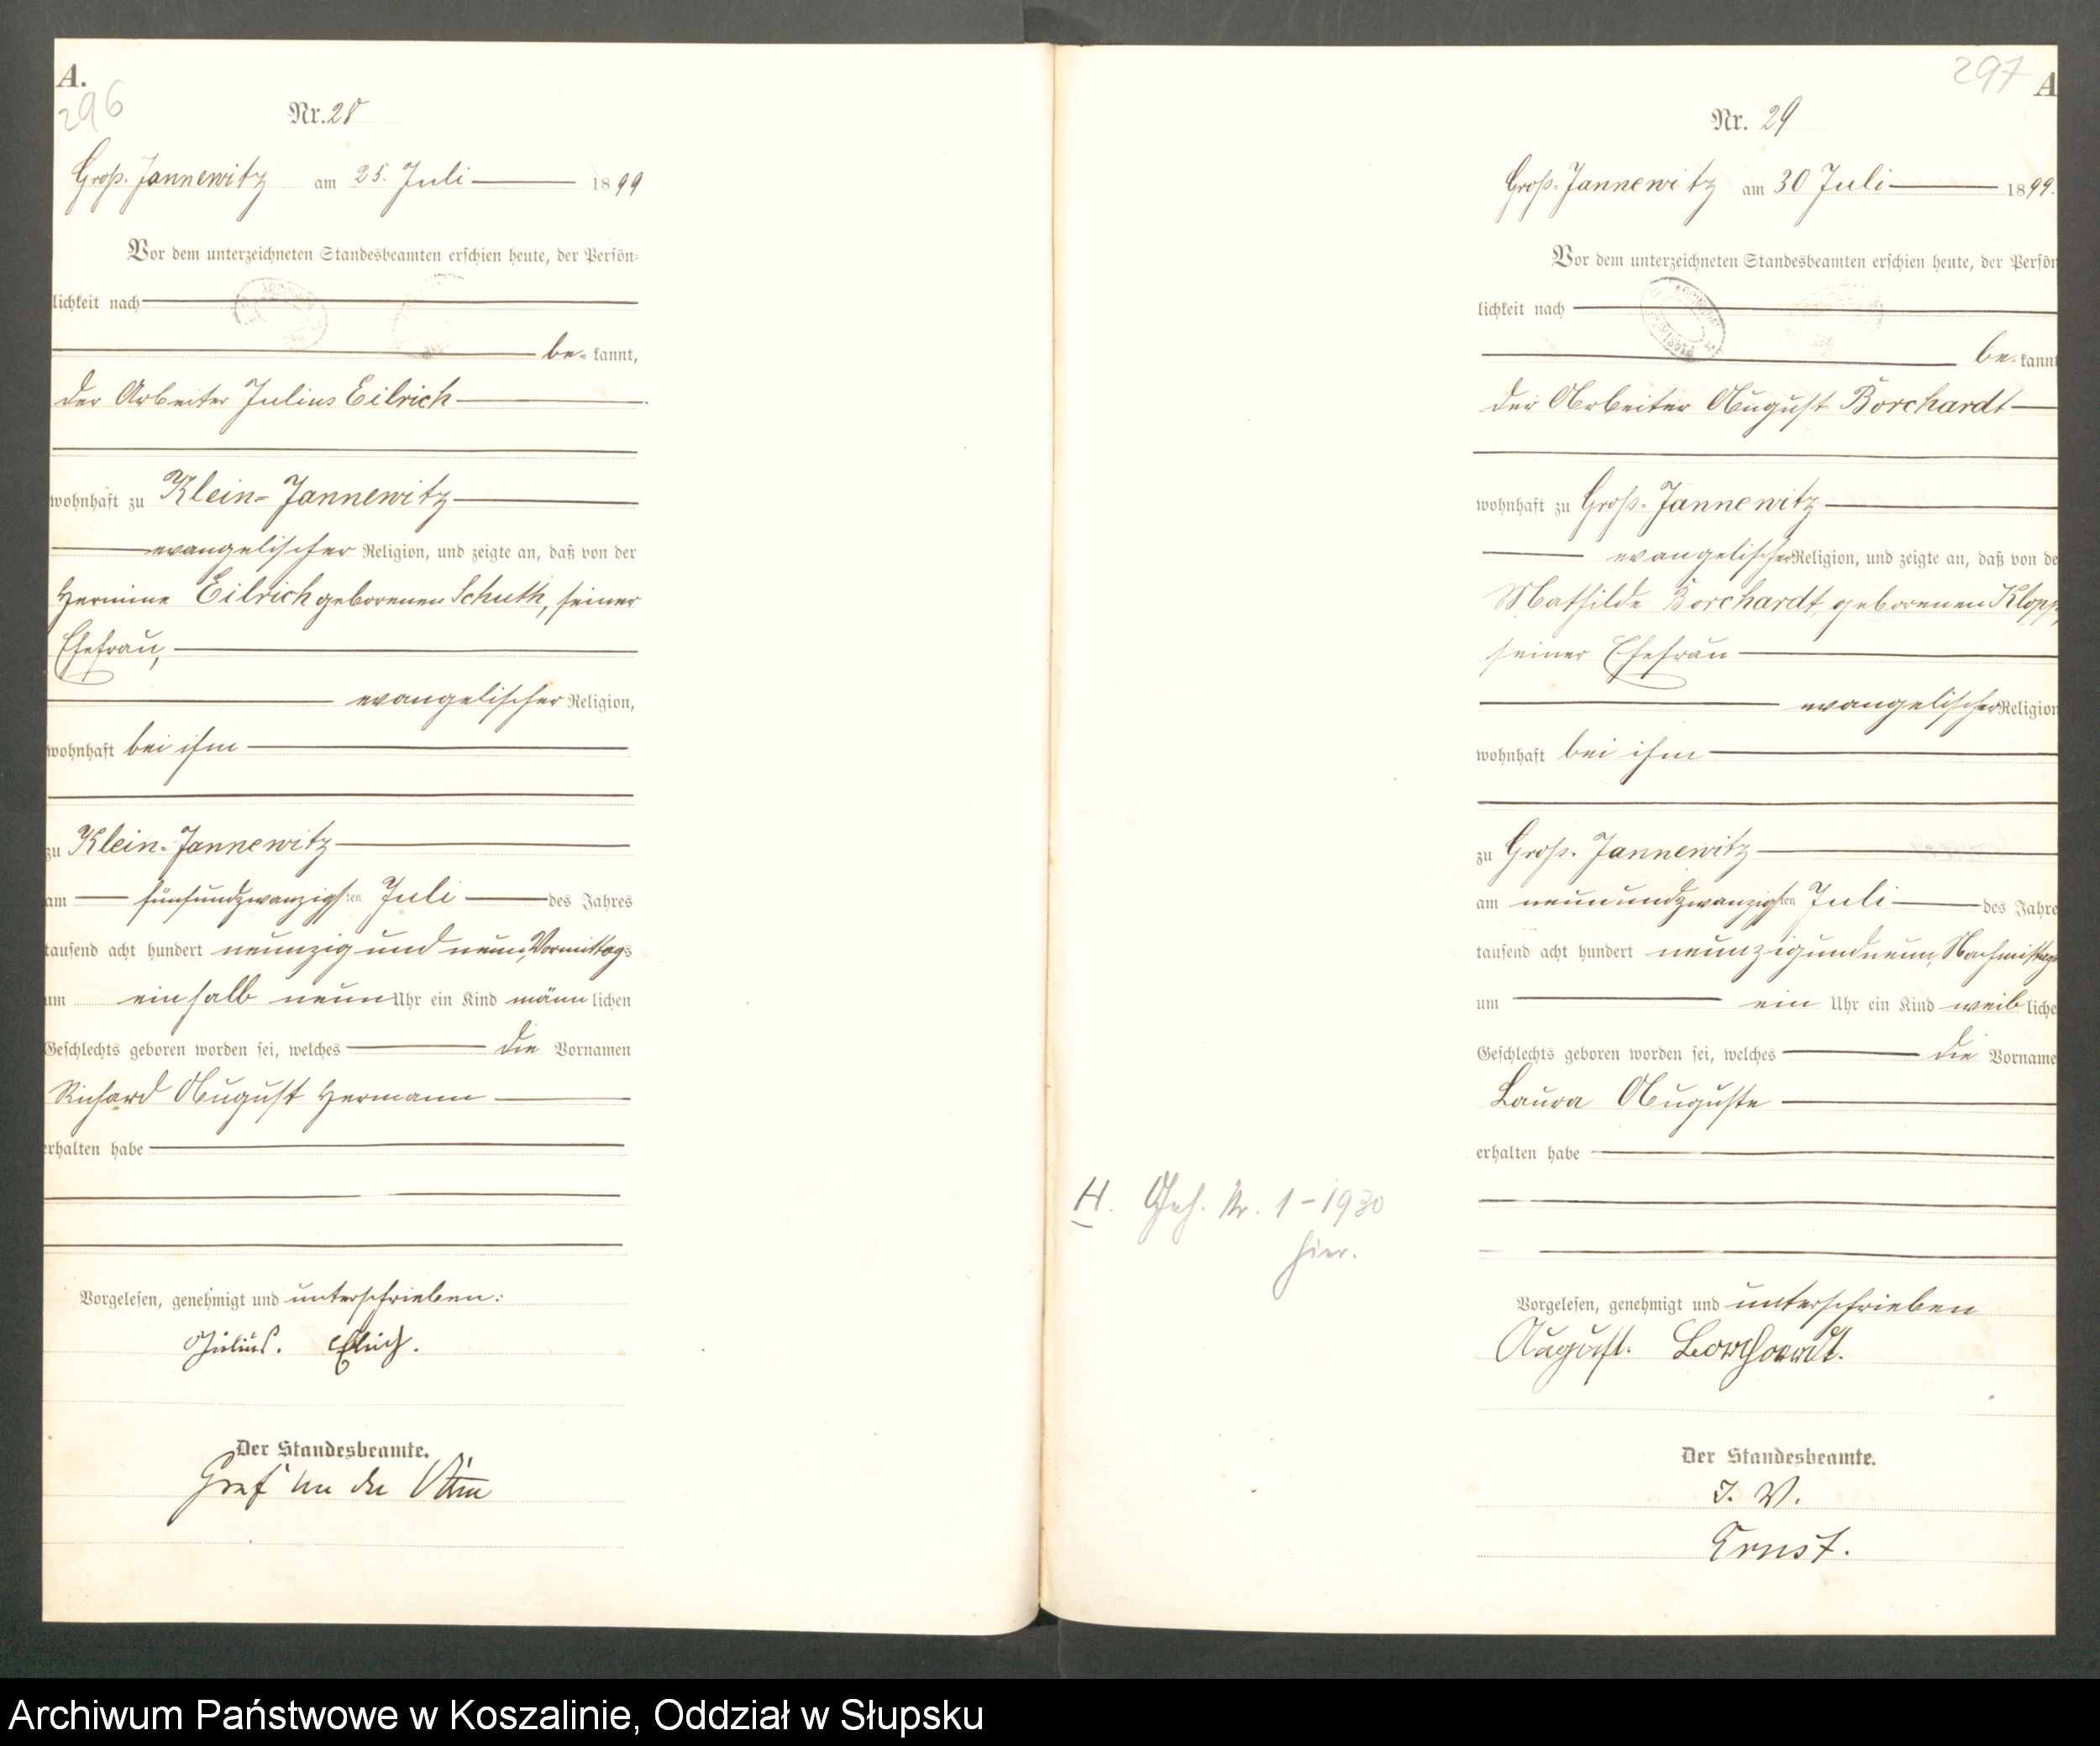 A.
296
Nr. 28
Groß-Jannewitz am 25. Juli 1899
Vor dem unterzeichneten Standesbeamten erschien heute, der Persön-
lichkeit nach
be-kannt,
der Arbeiter Julius Eilrich
wohnhaft zu Klein-Jannewitz
evangelischer Religion, und zeigte an, daß von der
Hermine Eilrich geborenen Schuth, seiner
Ehefrau,
evangelischer Religion,
wohnhaft bei ihm
zu Klein-Jannewitz
am fünfundzwanzigsten Juli des Jahres
tausend acht hundert neunzig und neun, Vormittags
um einhalb neun Uhr ein Kind männlichen
Geschlechts geboren worden sei, welches die Vornamen
Richard August Hermann
erhalten habe
Vorgelesen, genehmigt und unterschrieben:
Julius.
Der Standesbeamte.
Graf
297
A
Nr. 29
Groß-Jannewitz am 30 Juli 1899.
Vor dem unterzeichneten Standesbeamten erschien heute, der Persön
lichkeit nach
be-kannt
der Arbeiter August Borchardt
wohnhaft zu Groß-Jannewitz
evangelischer Religion, und zeigte an, daß von de
Mathilde Borchardt, geborenen Klopp,
seiner Ehefrau
evangelischer Religion
wohnhaft bei ihm
zu Groß-Jannewitz
am neunundzwanzigsten Juli des Jahre
tausend acht hundert neunzigundneun, Nachmittags
um ein Uhr ein Kind weibliche
Geschlechts geboren worden sei, welches die Vorname
Laura Auguste
erhalten habe
H. Geh. Nr. 1-1930
hier.
Vorgelesen, genehmigt und unterschrieben
August. Borchardt.
Der Standesbeamte.
I. V.
Ernst.
Archiwum Państwowe w Koszalinie, Oddział w Słupsku